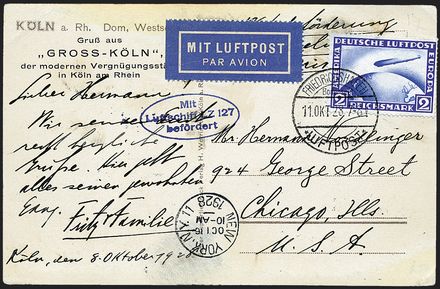 KÖLN a. Rh. Dom, Westse
Gruß aus
„GROSS-KÖLN",
der modernen Vergnügungsstä
in Köln am Rhein
MIT LUFTPOST
PAR AVION
DEUTSCHE LUFTPOST
EUROPA
AMERIKA
2 REICHSMARK 2
FRIEDRICHSHAFEN
11.OKT.28
LUFTPOST
Mit
Luftschiff LZ 127
befördert
Lieber Hermann!
Wir senden
recht herzliche
Grüße.
alles seinen gewohnten
Gang.
Fritz & Familie
Köln, den 8. Oktober 1928
NEW YORK, N.Y. 11
OCT 16
10 AM
1928
Mr Hermann
924 George Street
Chicago, Ills.
U. S. A.